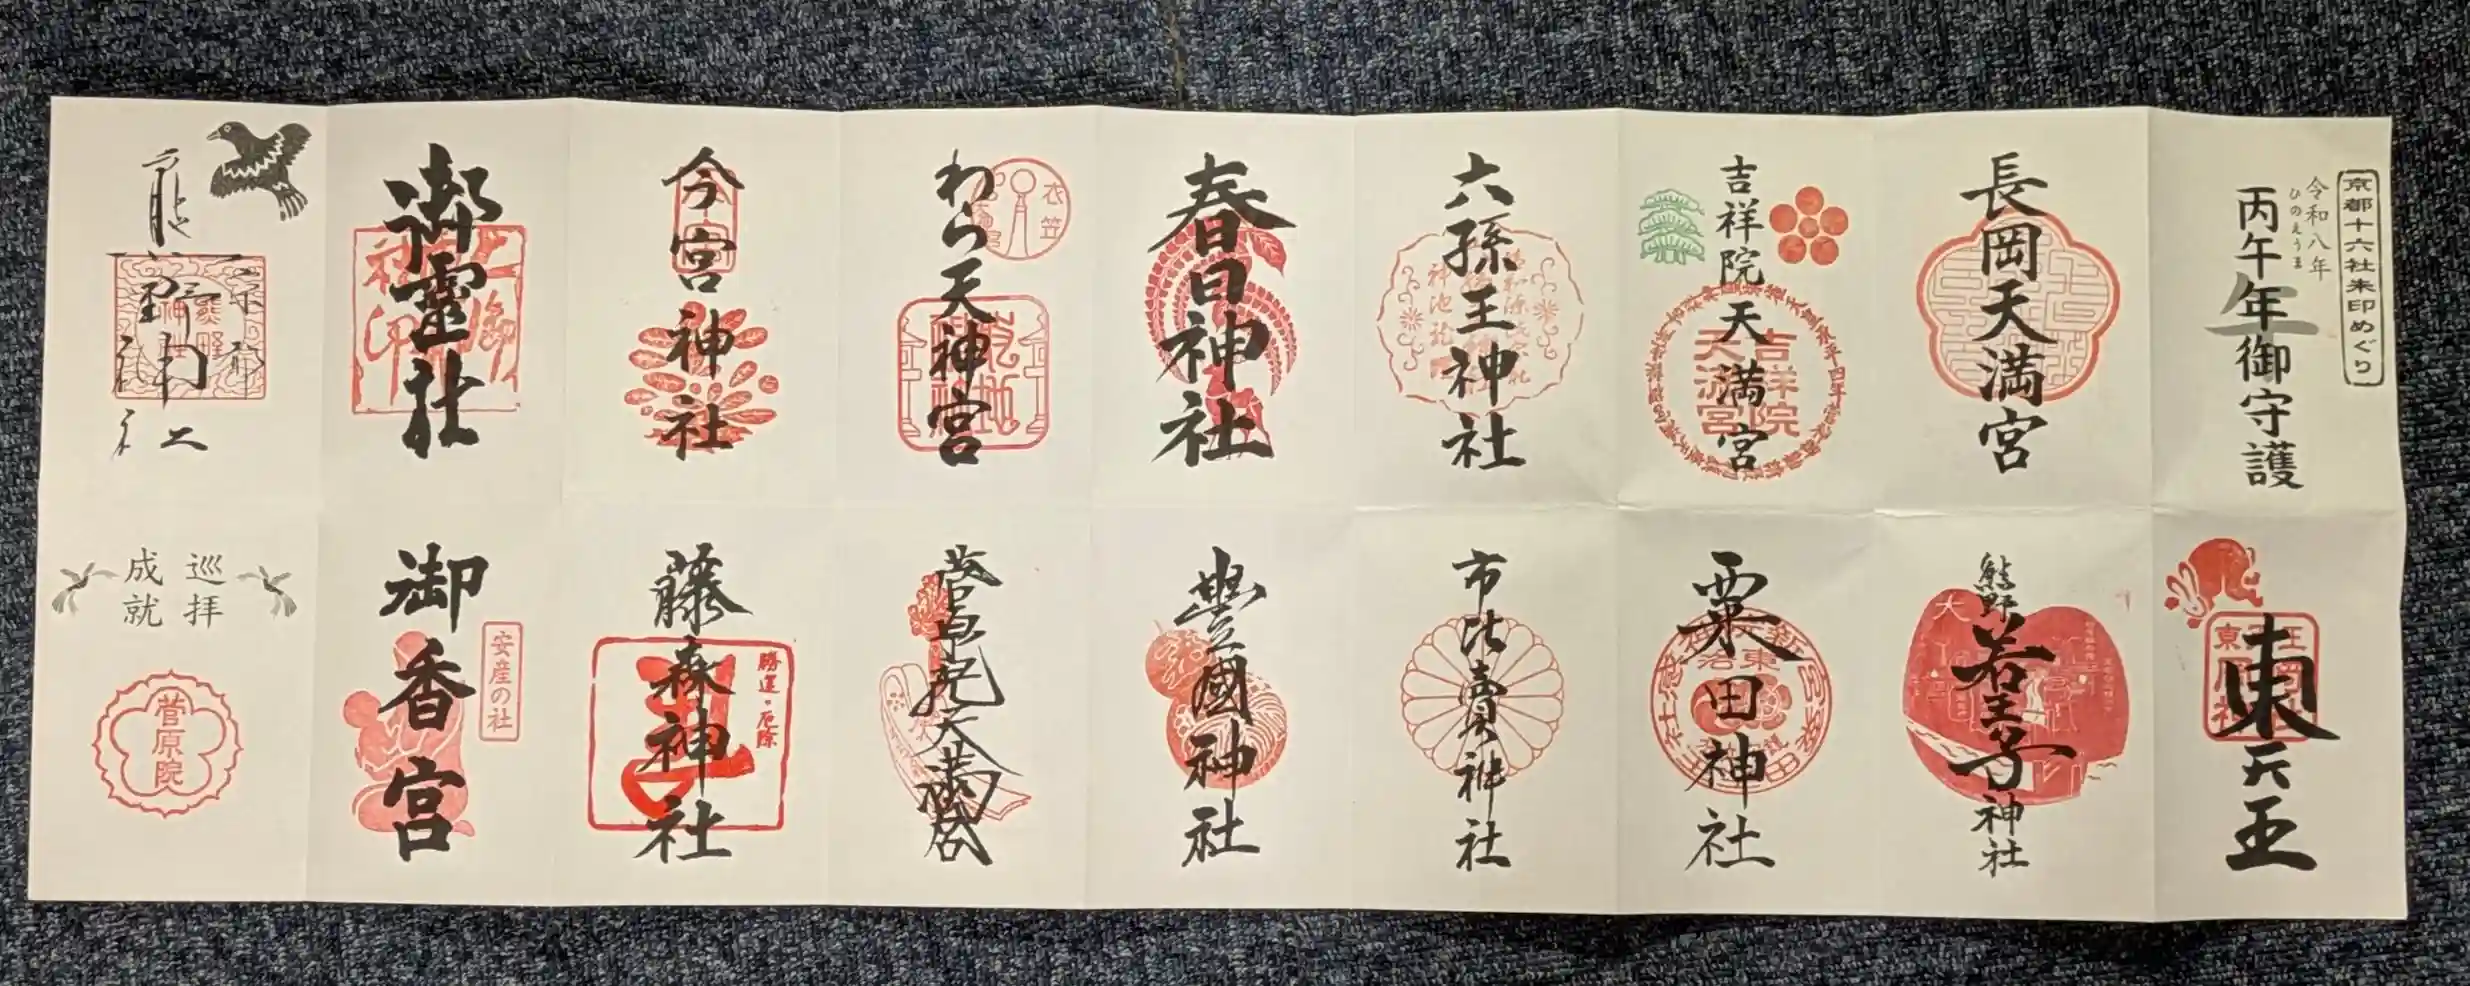 京都十六社朱印めぐり
令和八年
ひのえうま
丙午年御守護
長岡天満宮
吉祥院天満宮
吉祥院
天満宮
六孫王神社
春日神社
わら天神宮
衣笠
今宮神社
御靈社
熊野神社
東天王
熊野若王子神社
大
粟田神社
市比賣神社
豊國神社
菅原院天満宮
藤森神社
勝運・厄除
御香宮
安産の社
巡拝
成就
菅原院